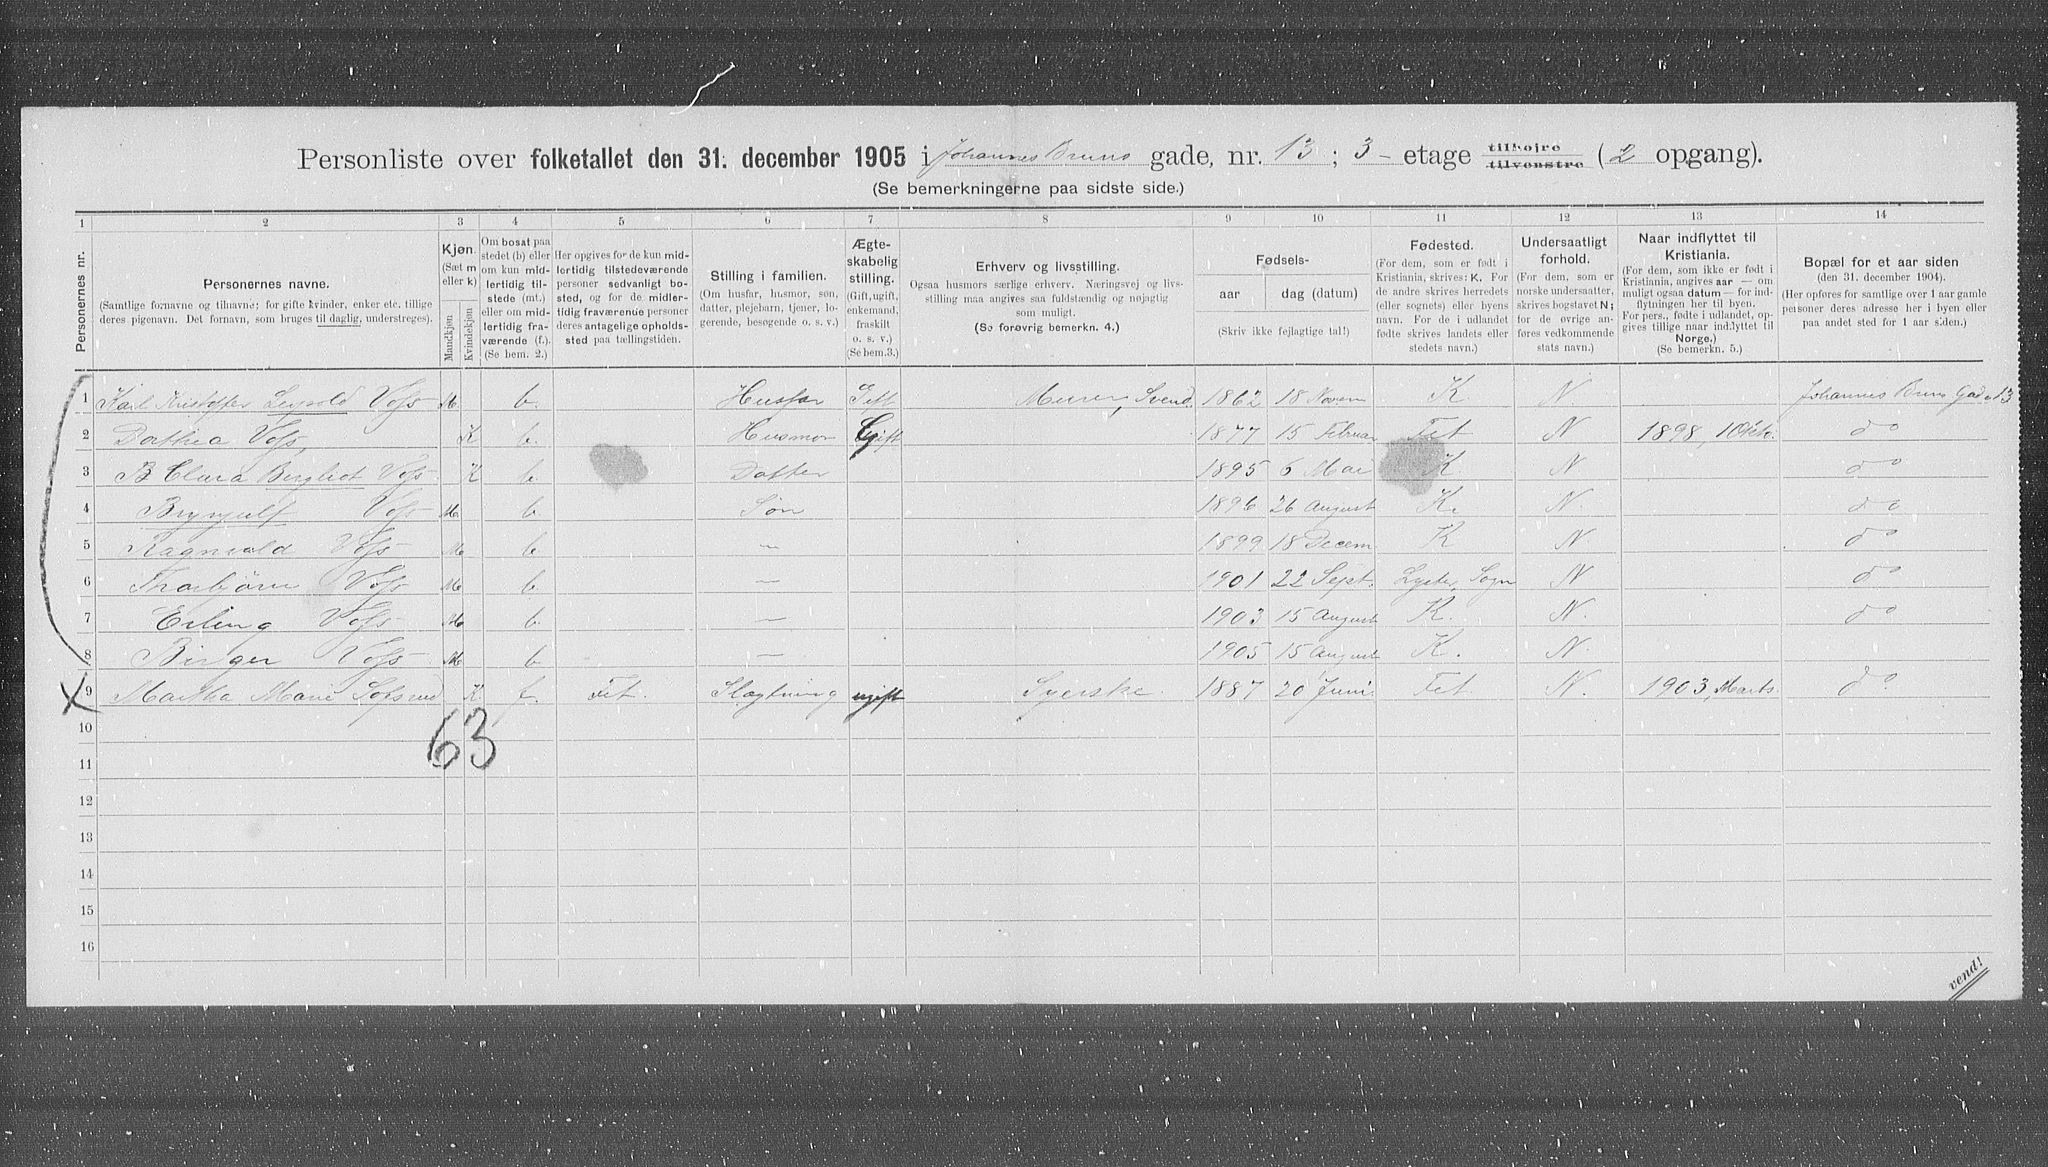 Personliste over folketallet den 31. december 1905 i Johannes Bruns gade, nr. 13 ; 3 - etage tilhøjre tilvenstre ( 2 opgang).
(Se bemerkningerne paa sidste side.)
1 2 3 4 5 6 7 8 9 10 11 12 13 14
Personernes nr.
Personernes navne.
(Samtlige fornavne og tilnavne; for gifte kvinder, enker etc. tillige
deres pigenavn. Det fornavn, som bruges til daglig, understreges).
Kjøn.
(Sæt m
eller k)
Mandkjøn
Kvindekjøn
Om bosat paa
stedet (b) eller
om kun mid-
lertidig til-
stede (mt.)
eller om mid-
lertidig fra-
værende (f.).
(Se bem. 2.)
Her opgives for de kun mid-
lertidig tilstedeværende
personer sedvanligt bo-
sted, og for de midler-
tidig fraværende personer
deres antagelige opholds-
sted paa tællingstiden.
Stilling i familien.
(Om husfar, husmor, søn,
datter, plejebarn, tjener, lo-
gerende, besøgende o. s. v.)
Ægte-
skabelig
stilling.
(Gift, ugift,
enkemand,
fraskilt
o. s. v.)
(Se bem.3.)
Erhverv og livsstilling.
Ogsaa husmors særlige erhverv. Næringsvej og livs-
stilling maa angives saa fuldstændig og nøjagtig
som muligt.
(Se forøvrig bemerkn. 4.)
Fødsels-
aar dag (datum)
(Skriv ikke fejlagtige tal!)
Fødested.
(For dem, som er født i
Kristiania, skrives: K. For
de andre skrives herredets
(eller sognets) eller byens
navn. For de i udlandet
fødte skrives landets eller
stedets navn.)
Undersaatligt
forhold.
(For dem, som er
norske undersaatter,
skrives bogstavet N;
for de øvrige an-
føres vedkommende
stats navn.)
Naar indflyttet til
Kristiania.
(For dem, som ikke er født i
Kristiania, angives aar — om
muligt ogsaa datum — for ind-
flytningen her til byen.
For pers., fødte i udlandet, op-
gives tillige naar indflyttet til
Norge.)
(Se bemerkn. 5.)
Bopæl for et aar siden
(den 31. december 1904).
(Her opføres for samtlige over 1 aar gamle
personer deres adresse her i byen eller
paa andet sted for 1 aar siden.)
1 Karl Kristoffer Leopold Voss M b. Husfar Gift Murer, Svend. 1862 18 Novem K N Johannes Bruns Gade 13
2 Dathea Voss, K b. Husmor Gift 1877 15 Februar Fet N 1898, 1 Okto. do
3 B Clara Bergliot Voss K b. Datter 1895 6 Mai K N do
4 Brynjulf Voss M b Søn 1896 26 August K. N. do
5 Ragnvald Voss M b — 1899 18 Decem. K N. do
6 Thorbjørn Voss M b. — 1901 22 Sept. Lyster, Sogn N do
7 Erling Voss M b. — 1903 15 August K. N. do
8 Birger Voss M b — 1905 15 August K. N.
X 9 Martha Marie K f. Fet. Slægtning ugift Syerske. 1887 20 Juni. Fet N. 1903, Marts. do.
63
10
11
12
13
14
15
16
vend!